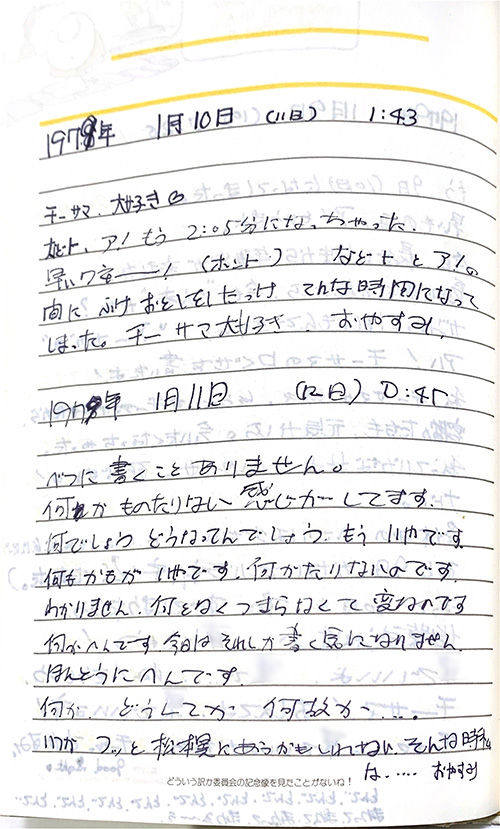 1979年 1月10日 (11日) 1:43
チーサマ、大好き
などト、ア!もう 2:05分になっちゃった.
早いワぁ——! (ホント) などトとア!の
間に ふけ おとしをしたっけ こんな時間になって
しまった。チーサマ大好き、おやすみ、
1979年 1月11日 (12日) 0:45
べつに書くことありません。
何か ものたりない感じが してます.
何でしょう どうなってんでしょう. もう いやです.
何もかもが いやです. 何かたりないのです.
わかりません. 何となくつまらなくて変なのです
何かへんです 今日は それしか書く気になれません.
ほんとうにへんです.
何か. どうしてか 何故か….
いつか フッと 松
にあうかもしれない. そんな時
は..... おやすみ
どういう訳か委員会の記念像を見たことがないね!